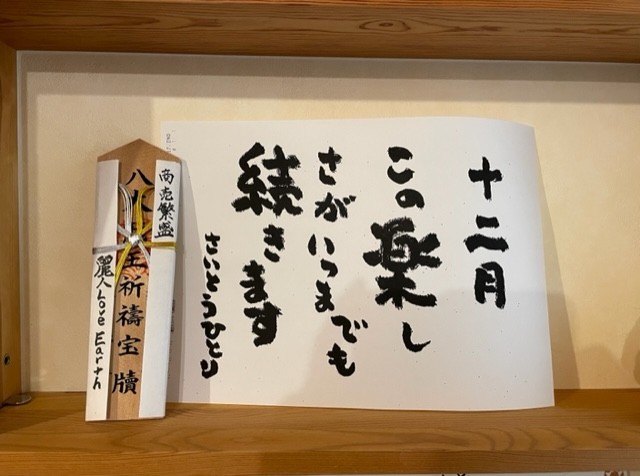 十二月
この楽し
さがいつまでも
続きます
さいとうひとり
商売繁盛
祈禱宝牘
麗人Love Earth